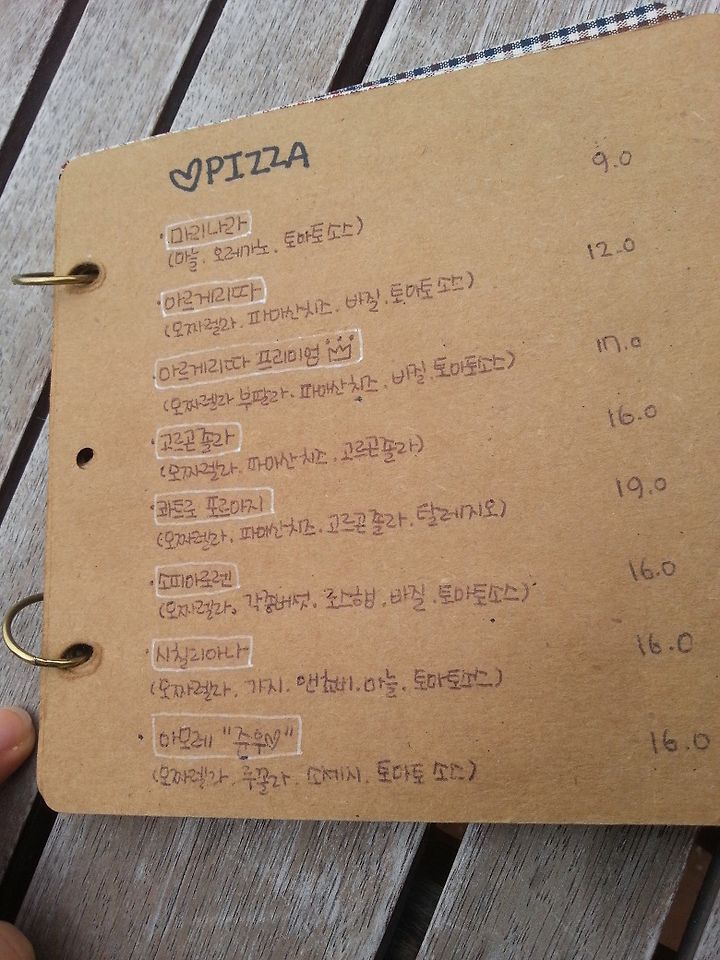 ♡PIZZA
· 마리나라 9.0
(마늘. 오레가노. 토마토소스)
· 마르게리따 12.0
(모짜렐라. 파마산치즈. 바질. 토마토소스)
· 마르게리따 프리미엄 17.0
(모짜렐라 부팔라. 파마산치즈. 바질. 토마토소스)
· 고르곤졸라 16.0
(모짜렐라. 파마산치즈. 고르곤졸라)
· 콰트로 포르마지 19.0
(모짜렐라. 파마산치즈. 고르곤졸라. 탈레지오)
· 소피아로렌 16.0
(모짜렐라. 각종버섯. 프로슈토. 바질. 토마토소스)
· 시칠리아나 16.0
(모짜렐라. 가지. 앤쵸비. 마늘. 토마토소스)
· 아모레 "준우♡" 16.0
(모짜렐라. 루꼴라. 소세지. 토마토 소스)